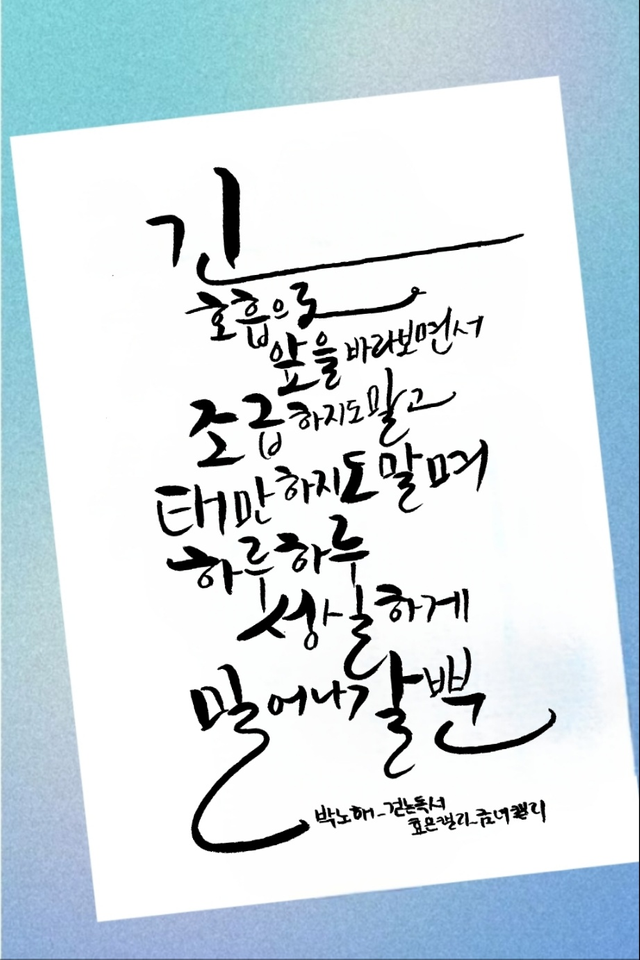 긴
호흡으로
앞을 바라보면서
조급하지도 말고
태만하지도 말며
하루하루
성실하게
밀어나갈 뿐
박노해 - 걷는독서
효은캘리 - 금녀캘리